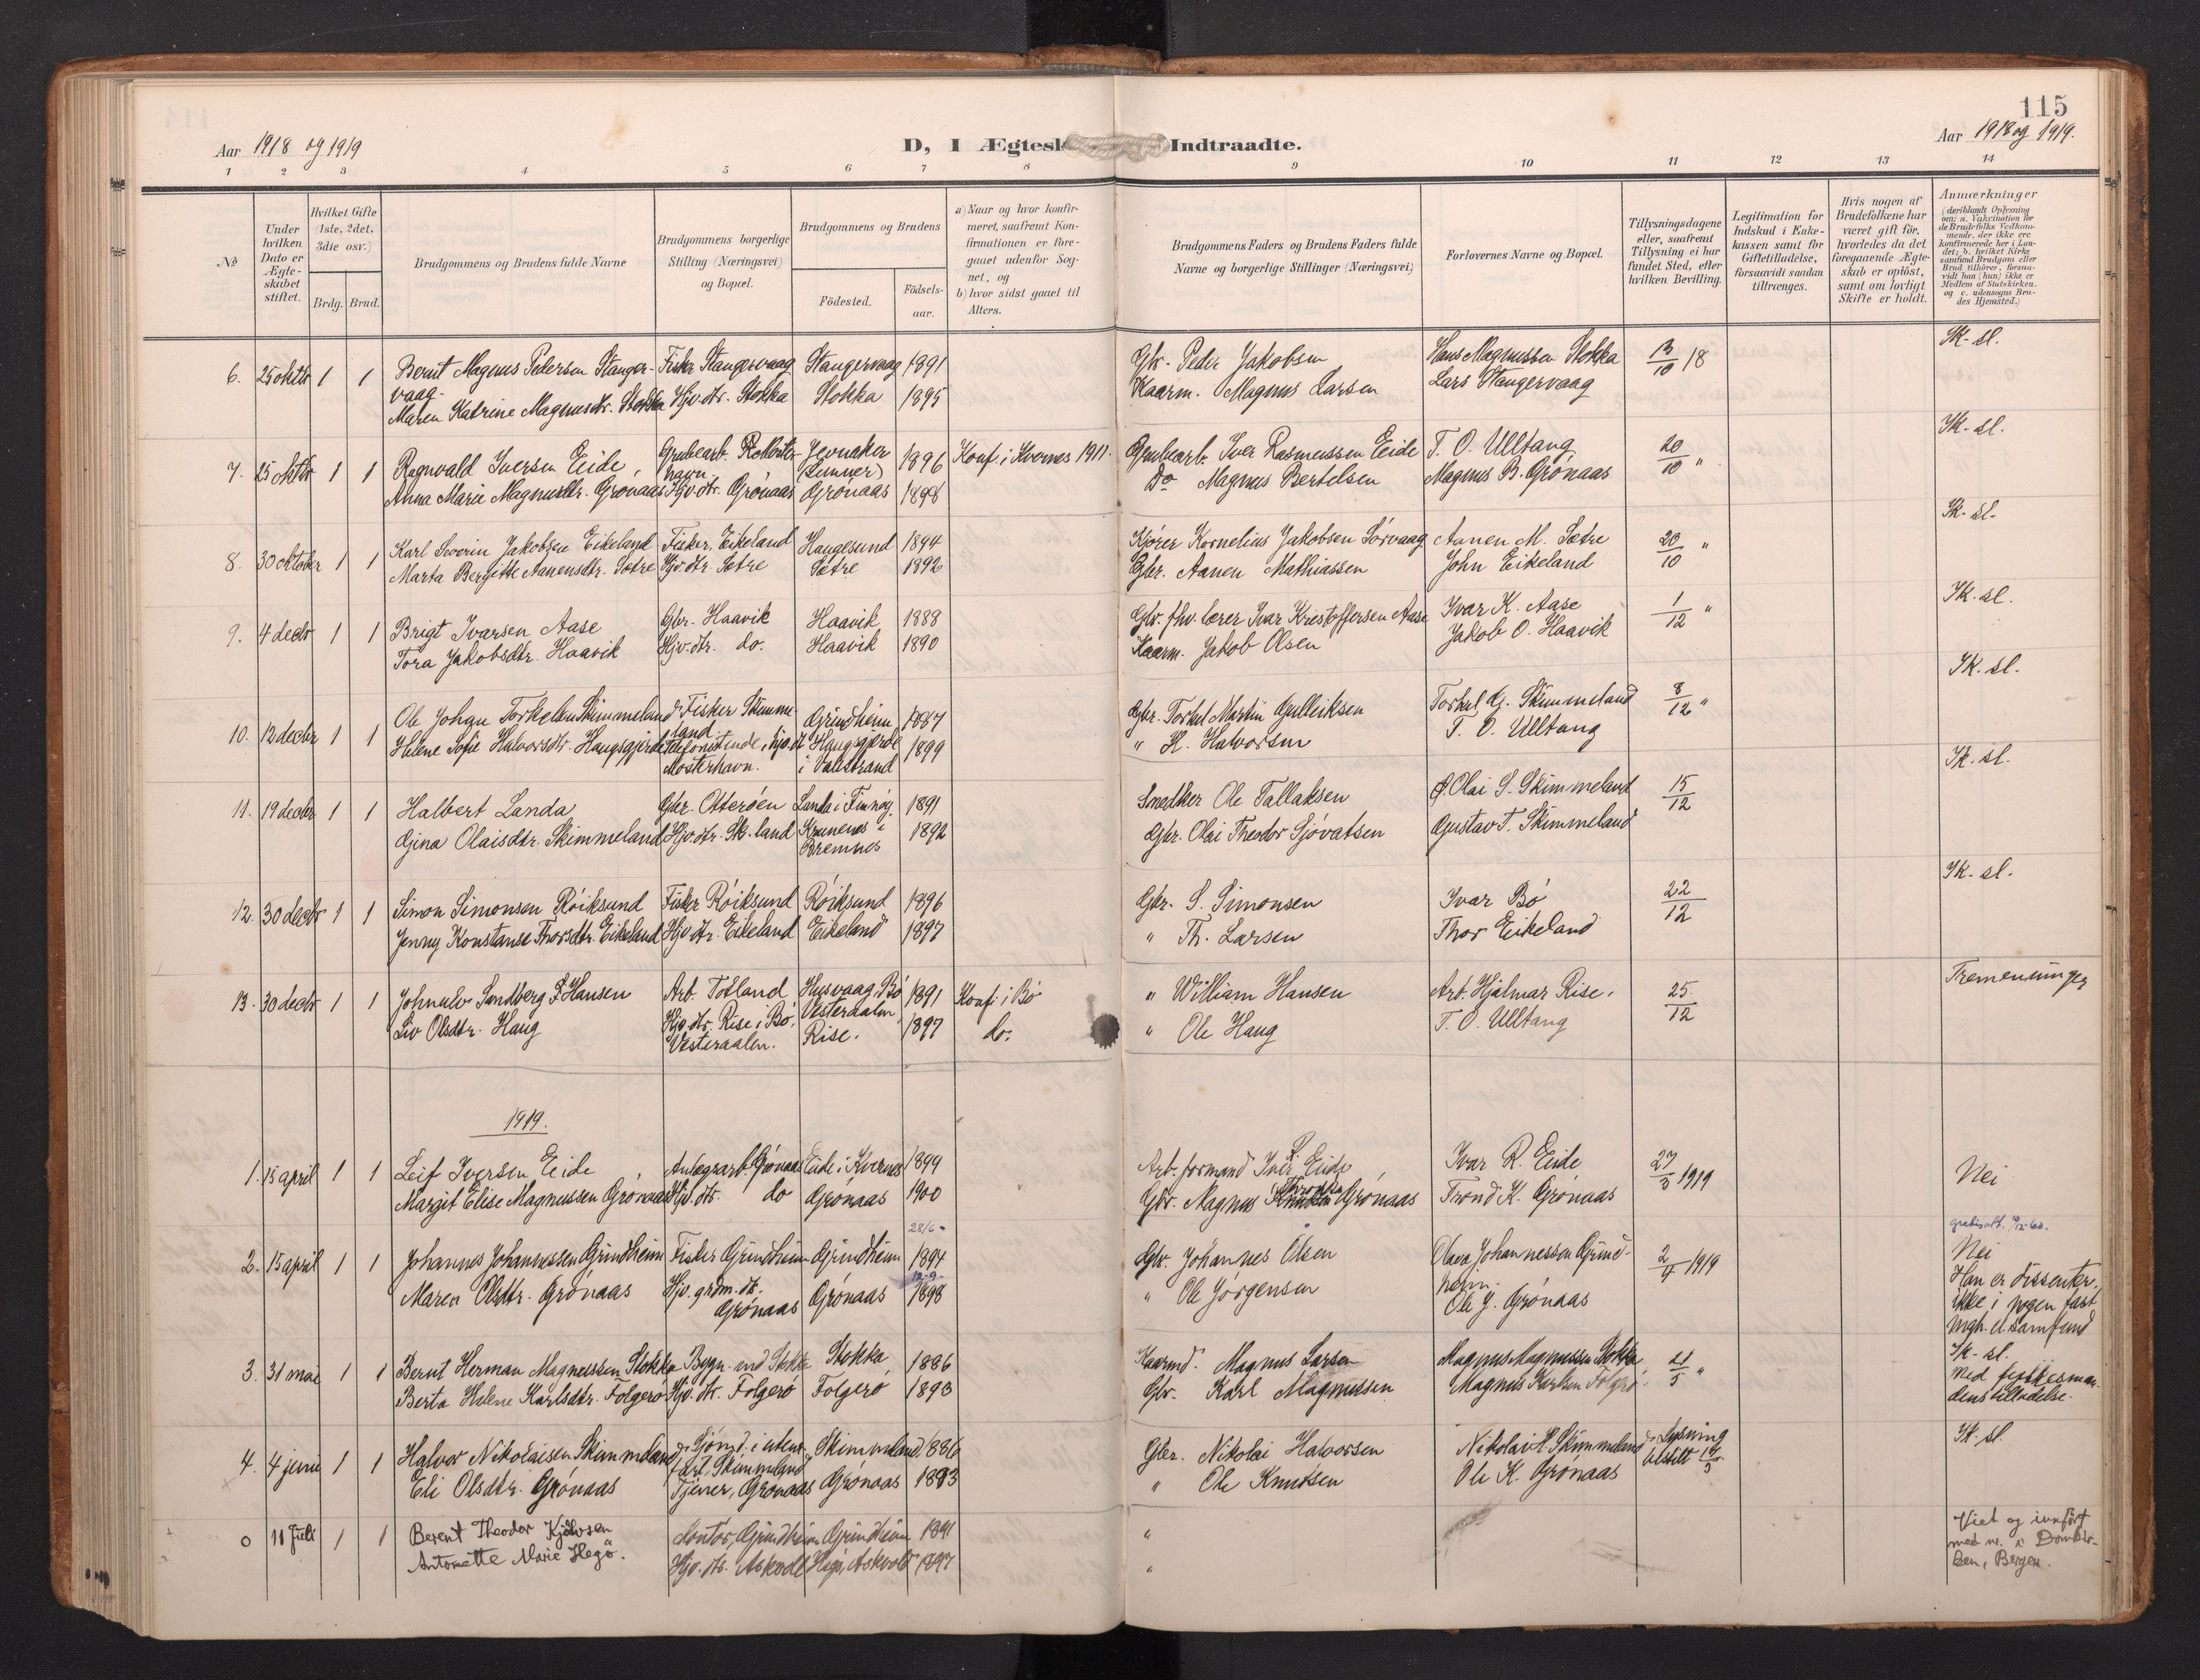 115
Aar 1918 og 1919
D, I Ægtesk Indtraadte.
Aar 1918 og 1919.
1 2 3 4 5 6 7 8 9 10 11 12 13 14
No
Under hvilken Dato er Ægteskabet stiftet.
Hvilket Gifte (1ste, 2det, 3die osv.)
Brdg. Brud.
Brudgommens og Brudens fulde Navne
Brudgommens borgerlige Stilling (Næringsvei) og Bopæl.
Brudgommens og Brudens
Födested.
Födsels-aar.
a) Naar og hvor konfirmeret, saafremt Konfirmationen er foregaaet udenfor Sognet, og
b) hvor sidst gaaet til Alters.
Brudgommens Faders og Brudens Faders fulde Navne og borgerlige Stillinger (Næringsvei)
Forlovernes Navne og Bopæl.
Tillysningsdagene eller, saafremt Tillysning ei har fundet Sted, efter hvilken Bevilling.
Legitimation for Indskud i Enkekassen samt for Giftetilladelse, forsaavidt saadan tiltrænges.
Hvis nogen af Brudefolkene har været gift för, hvorledes da det foregaaende Ægteskab er oplöst, samt om lovligt Skifte er holdt.
Anmærkninger
(deriblandt Oplysning om: a. Vakcination for de Brudefolks Vedkommende, der ikke ere konfirmerede her i Landet; b. hvilket Kirkesamfund Brudgom eller Brud tilhörer, forsaavidt han (hun) ikke er Medlem af Statskirken, og c. udensogns Brudes Hjemsted.)
6. 25 oktbr 1 1 Bernt Magnus Pedersen Stanger- Fisker Stangervaag Stangervaag 1891 Gbr. Peder Jakobsen Hans Magnussen Stokka 13/10 18 Sk. sl.
vaag.
Maren Katrine Magnusdtr. Stokka Hjv. dtr. Stokka Stokka 1895 Kaarm. Magnus Larsen Lars Stangervaag
7. 25 oktbr 1 1 Ragnvald Iversen Eide, Grubearb. Jevnaker 1896 Konf. i Kvernes 1911. Grubearb. Iver Rasmussen Eide T. O. Ulltang 20/10 " Sk. sl.
havn. (Lunner)
Anna Marie Magnusdtr. Grönaas Hjv. dtr. Grönaas Grönaas 1898 Do Magnus Bertelsen Magnus B. Grönaas
8. 30 oktober 1 1 Karl Severin Jakobsen Eikeland Fisker, Eikeland Haugesund 1894 Kjörer Kornelius Jakobsen Sörvaag Aanen M. Sætre 20/10 " Sk. sl.
Marta Bergitte Aanensdtr. Sætre Hjv. dtr. Sætre Sætre 1892 Gbr. Aanen Mathiassen John Eikeland
9. 4 decbr 1 1 Brigt Ivarsen Aase Gbr. Haavik Haavik 1888 Gbr. fhv. lærer Ivar Kristoffersen Aase Ivar K. Aase 1/12 " Sk. sl.
Tora Jakobsdtr. Haavik Hjv. dtr. do. Haavik 1890 Kaarm. Jakob Olsen Jakob O. Haavik
10. 12 decbr 1 1 Ole Johan Torkelsen Skimmeland Fisker Skimme- Grindheim 1887 Gbr. Torkel Martin Gulleiksen Torkel G. Skimmeland 8/12 " Sk. sl.
land
Helene Sofie Halvorsdtr. Haugsgjerde Telefonistinde, hjv. dt. Haugsgjerde 1899 " H. Halvorsen T. O. Ulltang
Mosterhavn. i Valestrand
11. 19 decbr 1 1 Halbert Landa Gbr. Otteröen Landa i Finnöy. 1891 Snedker Ole Tallaksen Olai S. Skimmeland 15/12 Sk. sl.
Gina Olaisdtr. Skimmeland Hjv. dtr. Sk. land i 1892 Gbr. Olai Theodor Sjövatsen Gustav T. Skimmeland
Bremnes
12. 30 decbr 1 1 Simon Simonsen Röiksund Fisker Röiksund Röiksund 1896 Gbr. S. Simonsen Ivar Bö 22/12 Sk. sl.
Jenny Konstanse Thorsdtr. Eikeland Hjv. dtr. Eikeland Eikeland 1897 " Th. Larsen Thor Eikeland
13. 30 decbr 1 1 Johnulv Sandberg Hansen Arb. Totland Husvaag, Bö 1891 Konf. i Bö " William Hansen Arb. Hjalmar Rise. 25/12 Tremenninger
Vesteraalen,
Liv Olsdtr. Haug Hjv. dtr. Rise i Bö, Rise. 1897 do. " Ole Haug T. O. Ulltang
Vesteraalen.
1919.
1. 15 april 1 1 Leif Iversen Eide Anlægsarb. Grönaas Eide i Kvernes 1899 Arb. formand Iver R. Eide Ivar R. Eide 27/3 1919 Nei
Margit Elise Magnussen Grönaas Hjv. dtr. do Grönaas 1900 Gbr. Magnus Grönaas Trond K. Grönaas
28/6
2. 15 april 1 1 Johannes Johannessen Grindheim Fisker Grindheim Grindheim 1894 Gbr. Johannes Olsen Johannessen Grind- 2/4 1919 Nei
heim.
12-9-
Maren Olsdtr. Grönaas Hjv. grdm. dt. Grönaas 1898 " Ole Jörgensen Ole J. Grönaas Han er dissenter,
Grönaas ikke i nogen fast
samfund
3. 31 mai 1 1 Bernt Herman Magnussen Stokka Bygn. Stokka Stokka 1886 Kaarmd. Magnus Larsen Magnus Magnussen Stokka 21/5 " Sk. sl.
Berta Helene Karlsdtr. Folgerö Hjv. dtr. Folgerö Folgerö 1893 Gbr. Karl Magnussen Magnus Karlsen Folgerö. Med fylkesman-
dens tilladelse.
4. 4 juni 1 1 Halvor Nikolaisen Skimmeland Sjömd. i utenr. Skimmeland 1886 Gbr. Nikolai Halvorsen Nikolai H. Skimmeland Lysning Sk. sl.
fart, Skimmeland utstedt
Eli Olsdtr. Grönaas Tjener, Grönaas Grönaas 1893 " Ole Knudsen Ole K. Grönaas
0 11 Juli 1 1 Berent Theodor Kjölvsen Kontor, Grindheim Grindheim 1891 " Viet og innfört
Antonette Marie Hegö. Hjv. dtr. Askvoll Hegö, Askvoll 1897 " med nr. i Domkir-
ken, Bergen.